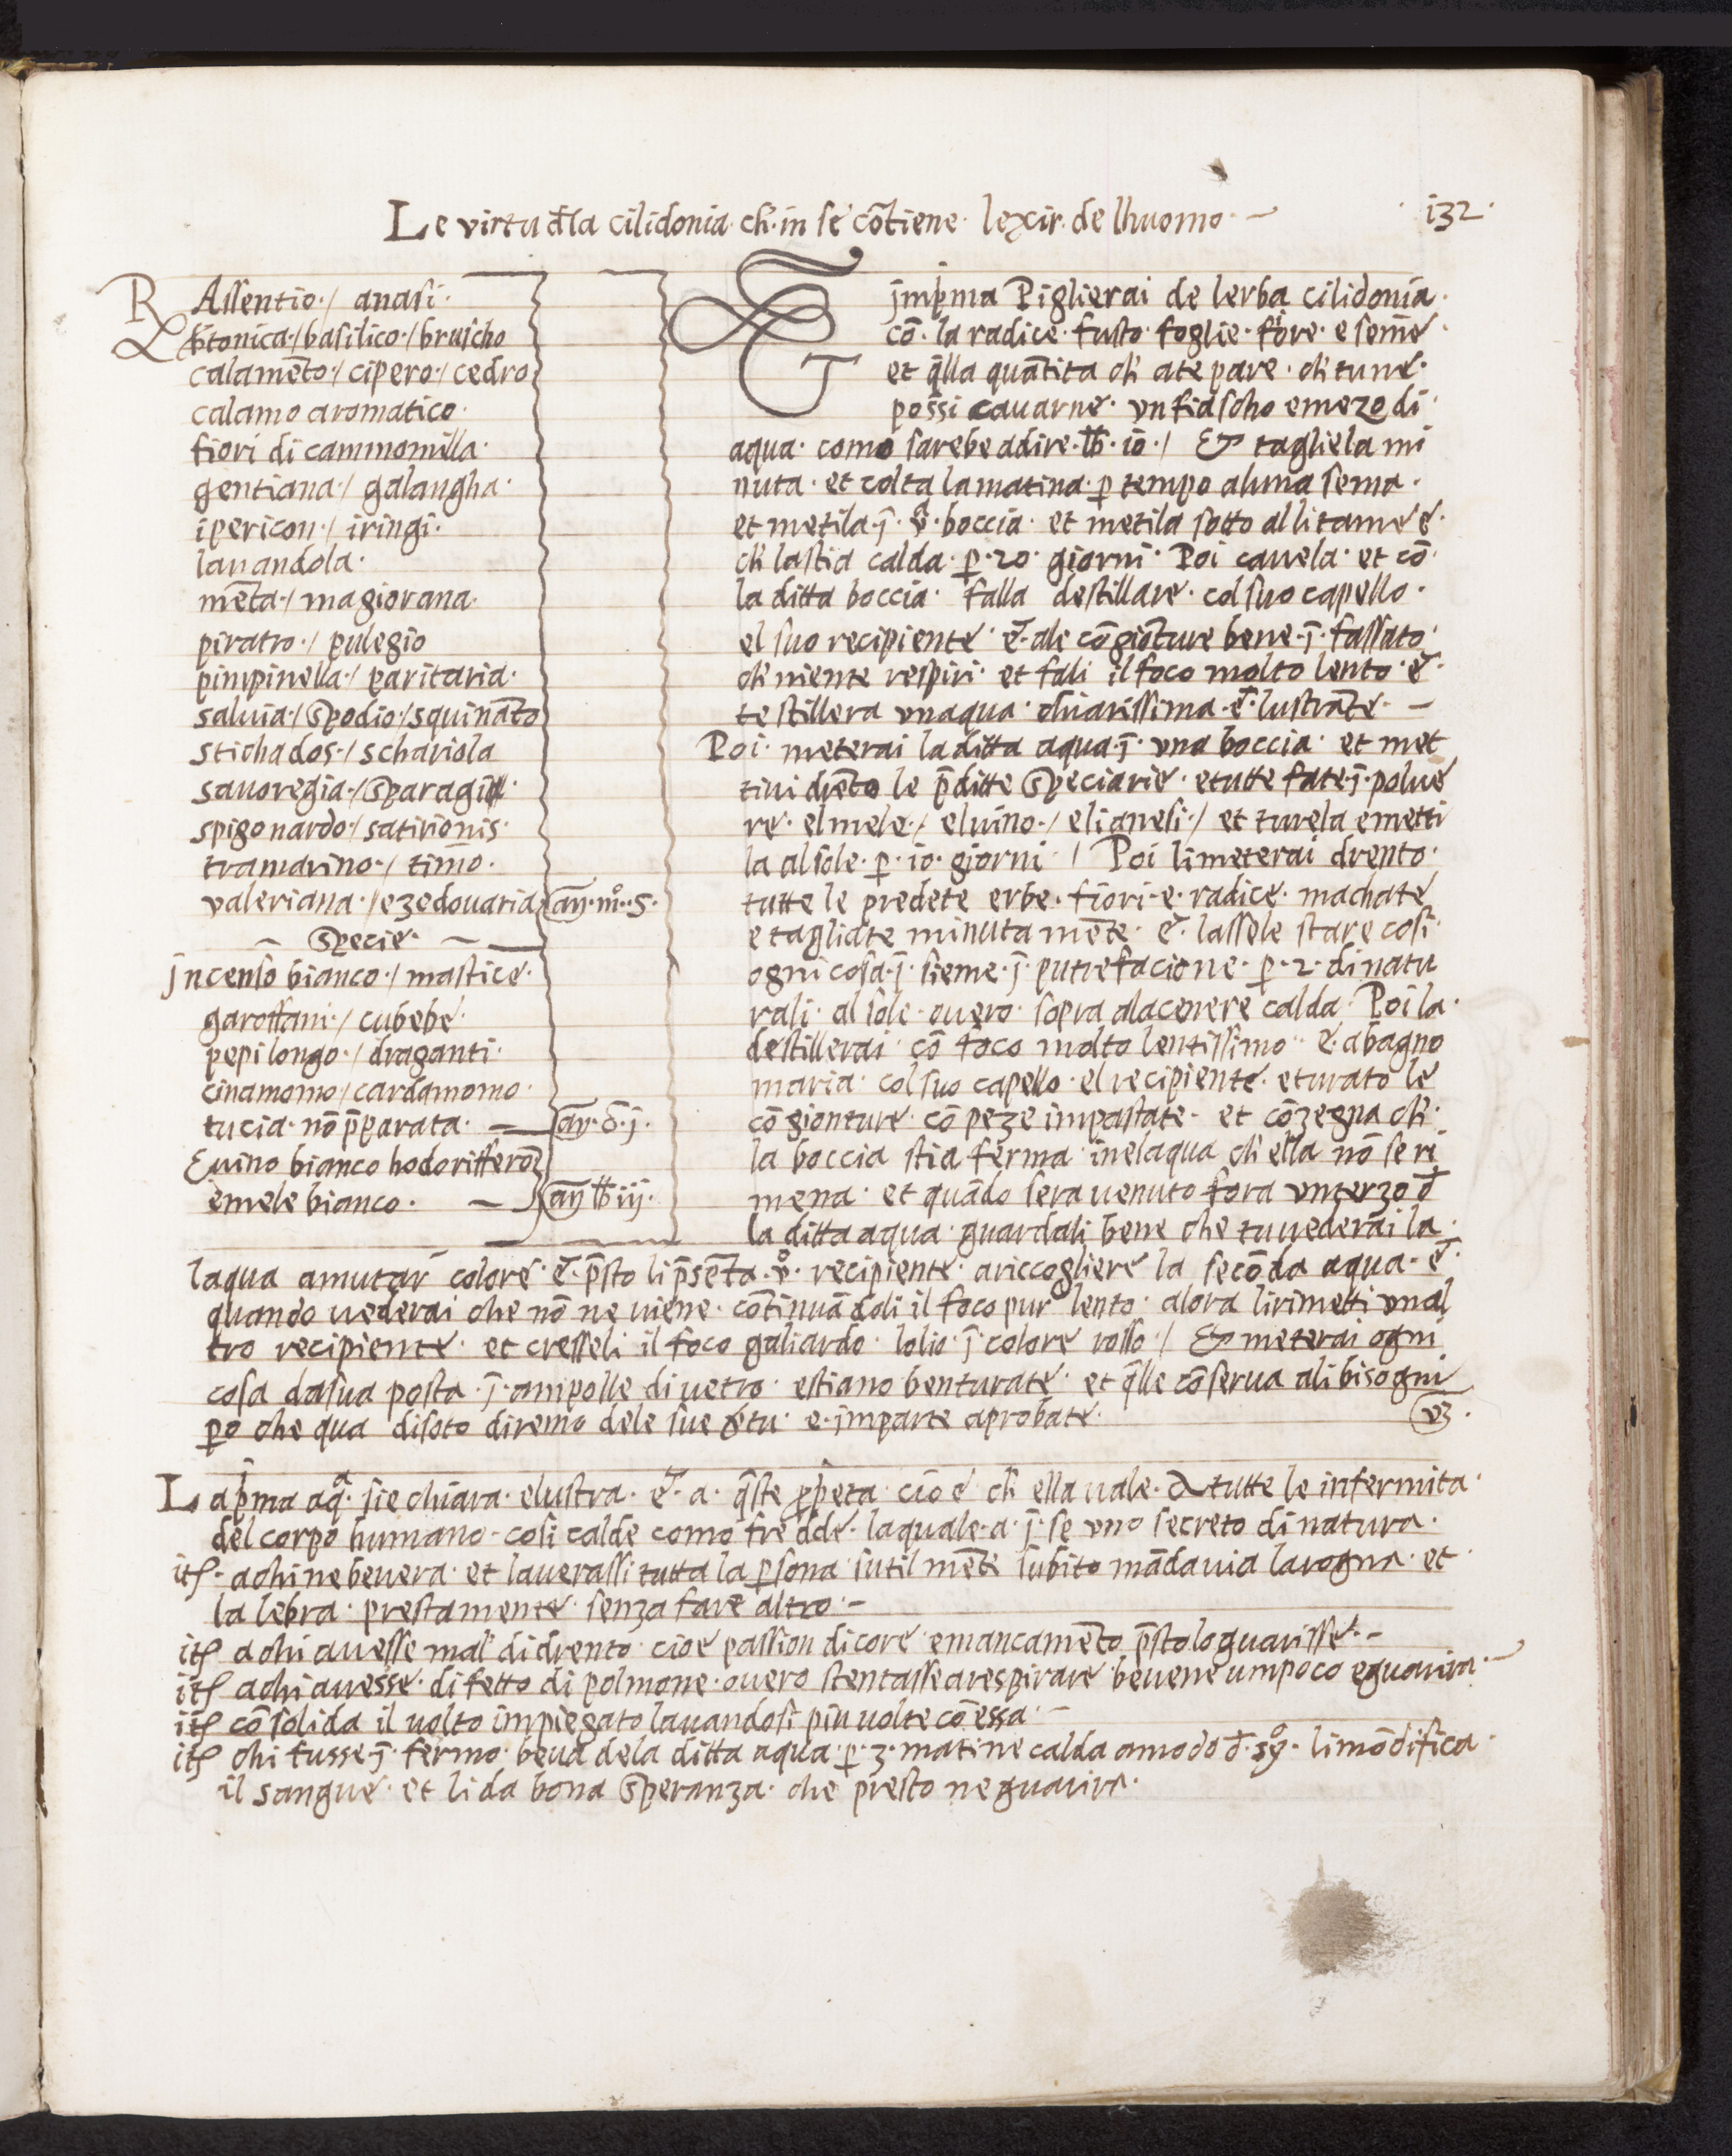 Le virtu đla cilidonia· ch̄· in se cōtiene· lexir· de lhuomo·—
·132·
R Assentio·/ anasi·
b̄tonica·/ basilico·/ bruscho
calamēto·/ cipero·/ cedro
calamo aromatico·
fiori di cammomilla·
gentiana·/ galangha·
ipericon·/ iringi·
lauandola·
mēta·/ magiorana·
piratro·/ pulegio
pimpinella·/ paritaria·
saluia·/ Spodio·/ squināto
stichados·/ schariola
sauoregia·/ Sparagi
spigo nardo·/ satirionis·
tramarino·/ timo·
valeriana·/ e zedouaria· añ·m°·5·
— Specie· —
jncenso bianco·/ mastice·
garoffani·/ cubebe·
pepi longo·/ draganti·
cinamomo/ cardamomo·
tucia· nō p̄parata· — añ·ō·j·
Euino bianco hodorifferō
emele bianco· — añ ℔ iij·
jmp̄ma Piglierai de lerba cilidonia·
cō· la radice· fusto· foglie· fiore· e seme·
et q̄lla quātita ch̄ ate pare· ch̄ tu ne·
possi cauarne· vn fiascho emezo di·
aqua· como sarebe adire·℔·io·/ Et tagliela mi
nuta· et colta la matina· ꝑ tempo a luna sema·
et metila·j̄·vª·boccia· et metila sotto al litame e·
ch̄ la stia calda· ꝑ·20· giorni· Poi cauela· et cō·
la ditta boccia· falla destillare· col suo capello·
el suo recipiente· e· ale cōgioture bene·j̄· fassato·
ch̄ niente respiri· et fali il foco molto lento· e·
te stillera vnaqua· chiarissima·e· lustrāte·—
Poi· meterai la ditta aqua·j̄· vna boccia· et met
tiui drēto le p̄ditte Speciarie· e tutte fate·j̄· polue
re· el mele·/ el uino·/ e li anesi·/ et turela emetti
la al sole· ꝑ· io· giorni·/ Poi li meterai drento·
tutte le predete erbe· fiori·e· radice· machate
e tagliate minuta mēte· e· lassele stare cosi·
ogni cosa·j̄· sieme·j̄· putrefacione· ꝑ·2· di natu
rali· al sole· ouero· sopra ala cenere calda· Poi la·
destillerai· cō foco molto lentissimo· e· a bagno
maria· col suo capello· el recipiente· e turato le
cō gionture· cō peze impastate· et cōzegna ch̄·
la boccia stia ferma inelaqua ch̄ ella nō se ri
mena· et quādo sera uenuto fora vn terzo đ
la ditta aqua· guardali bene che tu uederai la·
laqua amutar colore· e· p̄sto li p̄sēta·v°· recipiente· a riccogliere la secōda aqua· e·
quando uederai che nō ne uiene· cōtinuādoli il foco pur lento· alora li rimetti vnal
tro recipiente· et cresseli il foco galiardo· lolio·j̄· colore rosso·/ Et meterai ogni
cosa da sua posta·j̄· ampolle di uetro· e stiano ben turate· et q̄lle cōserua ali bisogni
ꝑo che qua di soto diremo dele sue v̄tu· e· jmparte aprobate·
v3·
La p̄ma aqª· sie chiara· e lustra· e· a· q̄ste ꝓp̄eta· cio e· ch̄ ella uale· A tutte le infermita·
del corpo humano· cosi calde como fredde· laquale·a·j̄· se vno secreto di natura·
itē· a chi ne beuera· et lauerassi tutta la ꝑsona sutil mēte subito māda uia la rogna· et·
la lebra· prestamente· senza fare altro·—
itē a chi auesse mal di drento· cioe passion di core e mancamēto p̄sto lo guarisse·—
itē a chi auesse· difetto di polmone· ouero stentasse a respirare beuene um poco e guarira·
itē cōsolida il uolto impiegato lauandosi piu uolte cō essa·—
itē chi fusse·j̄· fermo· beua dela ditta aqua· ꝑ·3· matine calda a modo đ·sy°· li mōdifica·
il sangue· et li da bona Speranza· che presto ne guarira·